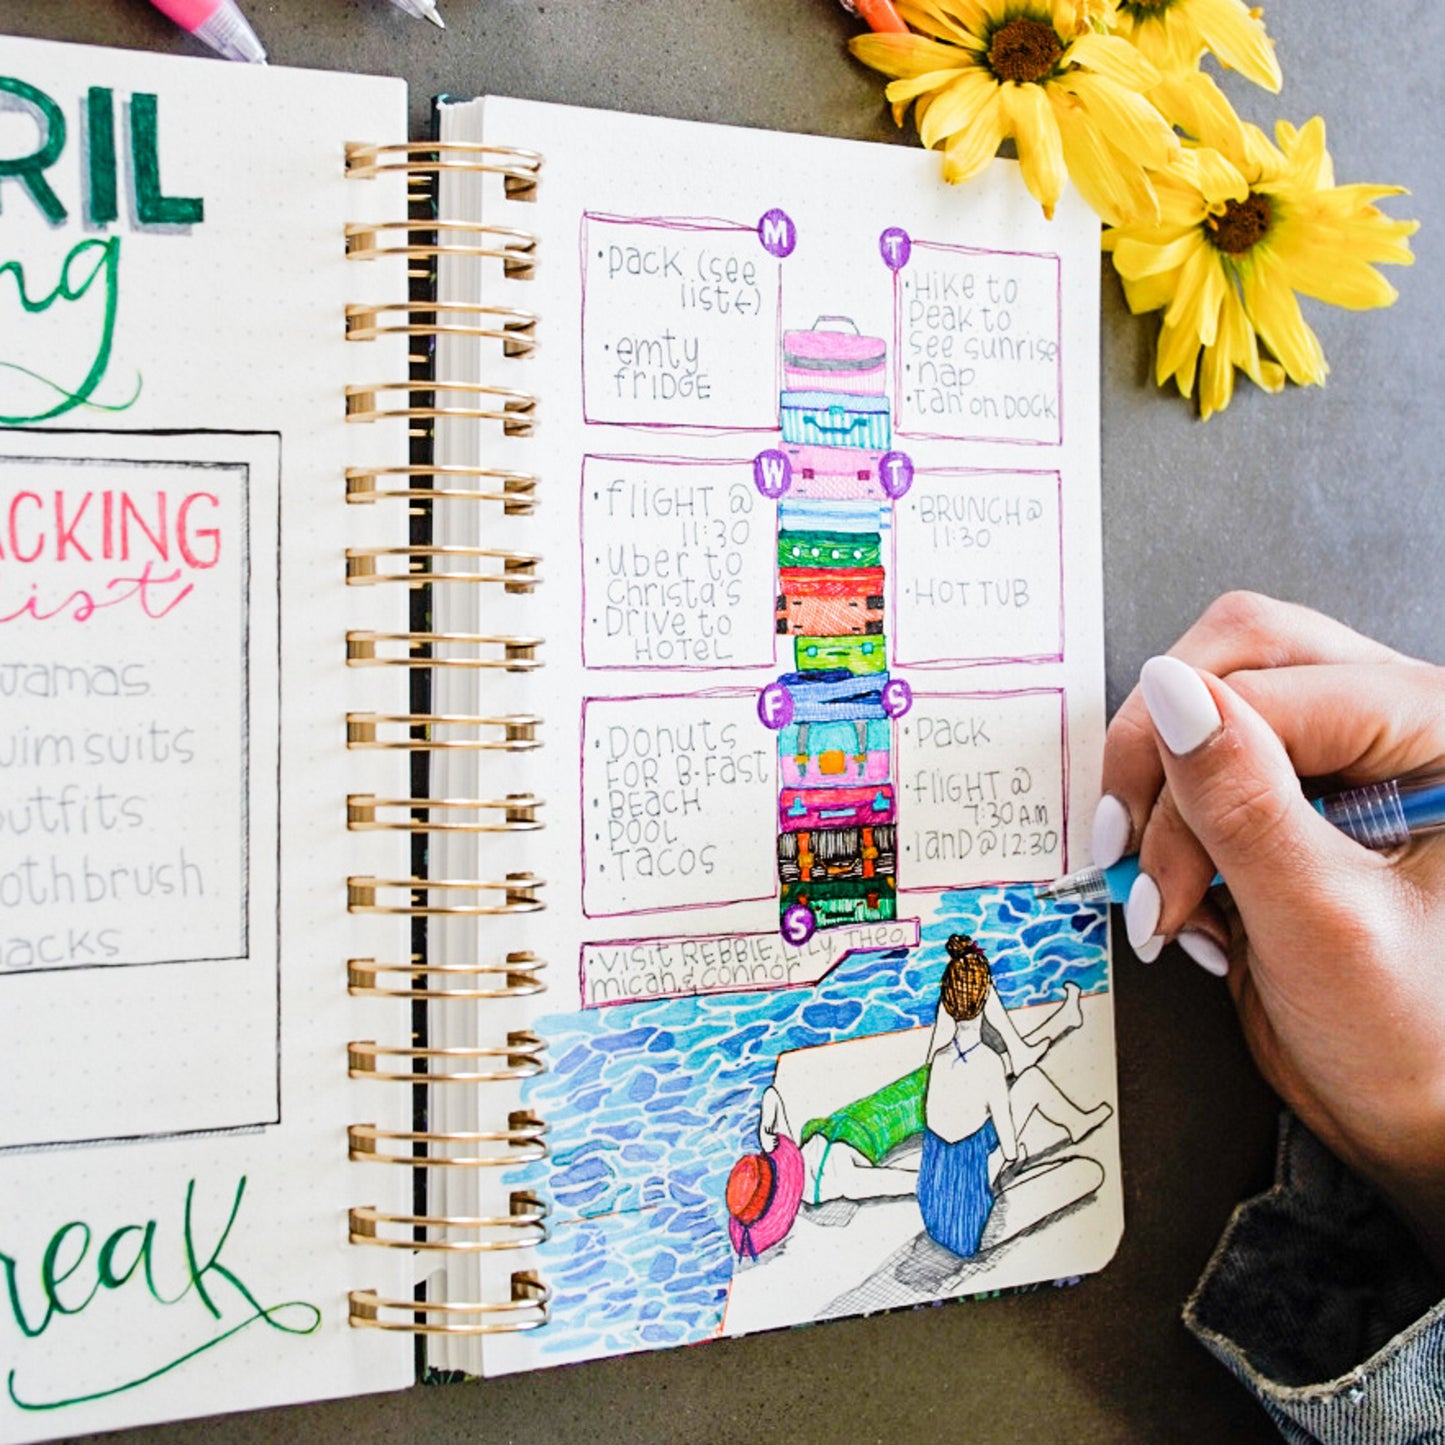 RIL
ng
ACKING
list
jamas
uimsuits
outfits
oothbrush
nacks
reak
M
• pack (see
list←)
• emty
fRIDGE
T
• Hike to
peak to
see sunrise
• nap
• tan on DOCK
W
• fliGHT @
11:30
• Uber to
Christa's
• Drive to
HOTEL
T
• BRUNCH @
11:30
• HOT TUB
F
• Donuts
FOR B-Fast
• BEACH
• POOL
• TACOS
S
• Pack
• fliGHT @
7:30 A.M
• lanD @ 12:30
S
• Visit REBBIE, Lily, THEO,
micah & connor